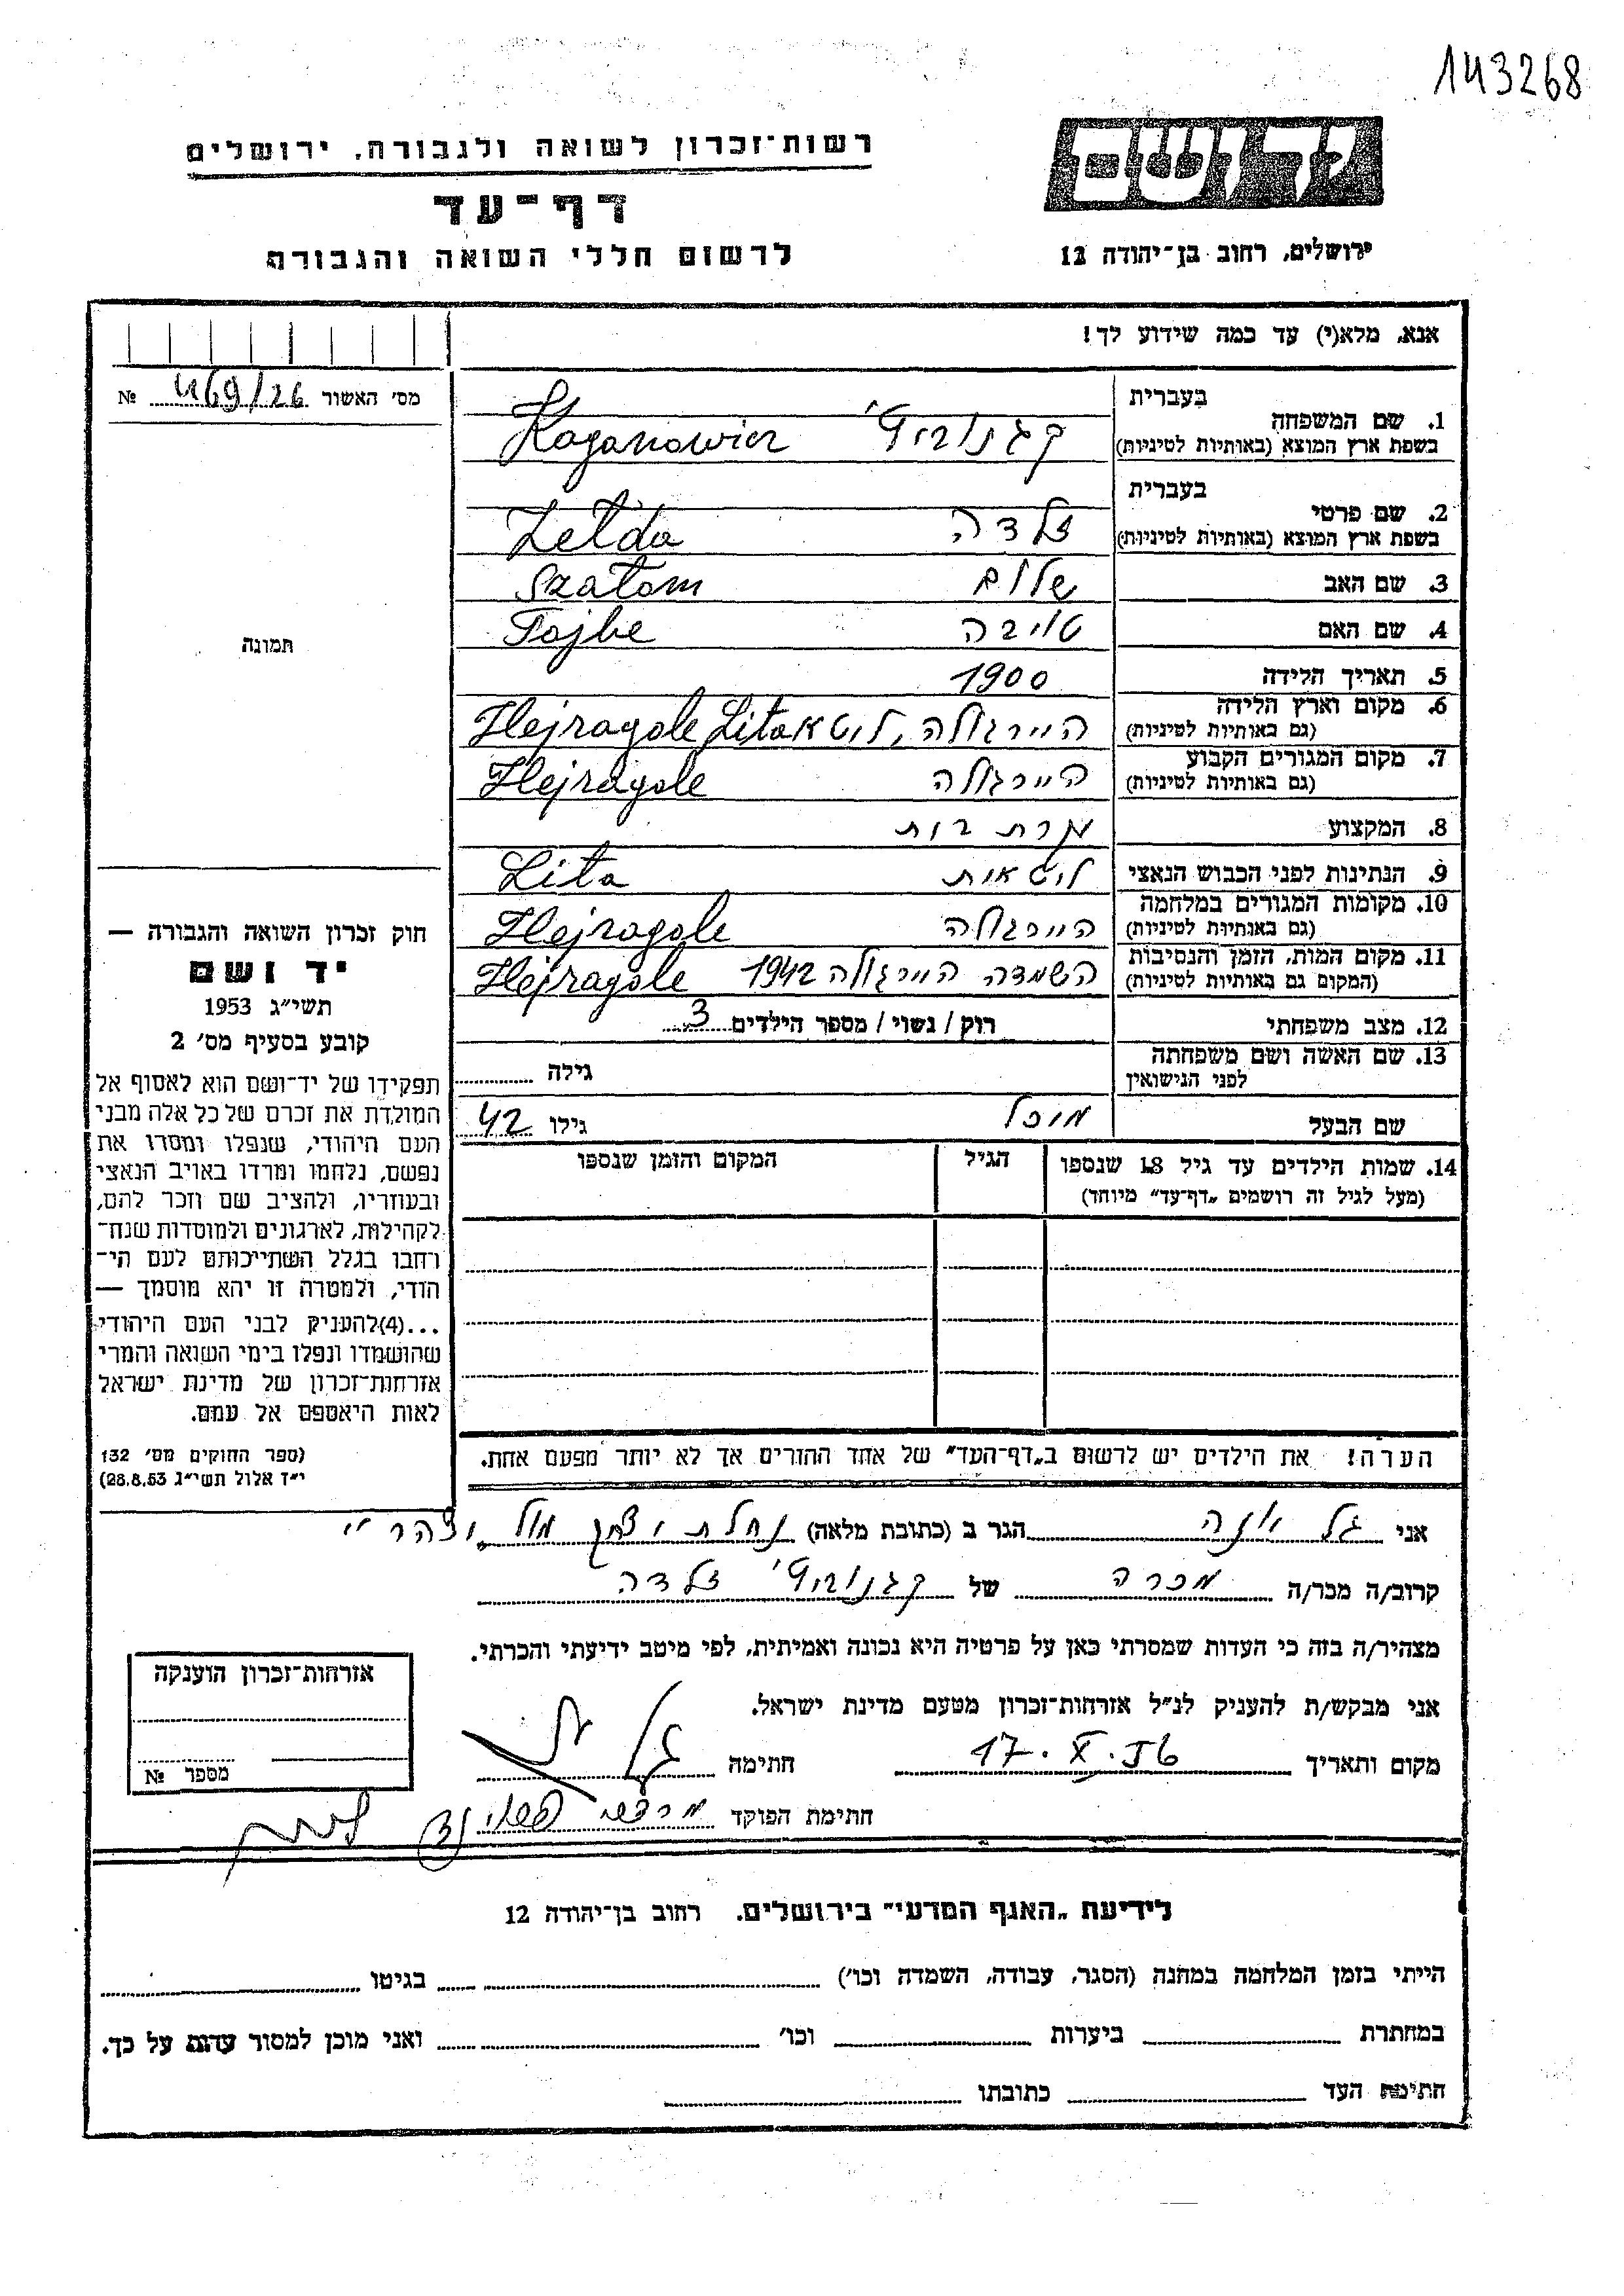 143268
רשות־זכרון לשואה ולגבורה, ירושלים
דף־עד
לרשום חללי השואה והגבורה
ירושלים, רחוב בן־יהודה 12
אנא, מלא(י) עד כמה שידוע לך!
מס׳ האשור 469/26 №
תמונה
חוק זכרון השואה והגבורה —
יד ושם
תשי״ג 1953
קובע בסעיף מס׳ 2
תפקידו של יד־ושם הוא לאסוף אל
המולדת את זכרם של כל אלה מבני
העם היהודי, שנפלו ומסרו את
נפשם, נלחמו ומרדו באויב הנאצי
ובעוזריו, ולהציב שם וזכר להם,
לקהילות, לארגונים ולמוסדות שנח־
רחבו בגלל השתייכותם לעם הי־
הודי, ולמטרה זו יהא מוסמך —
...(4)להעניק לבני העם היהודי
שהושמדו ונפלו בימי השואה והמרי
אזרחות־זכרון של מדינת ישראל
לאות היאספם אל עמם.
(ספר החוקים מס׳ 132
י״ז אלול תשי״ג 28.8.53)
בעברית
1. שם המשפחה קגנוביץ׳ Kaganowicz
בשפת ארץ המוצא (באותיות לטיניות)
בעברית
2. שם פרטי זלדה Zelda
בשפת ארץ המוצא (באותיות לטיניות)
3. שם האב שלום Szalom
4. שם האם טויבה Tojbe
5. תאריך הלידה 1900
6. מקום וארץ הלידה היירגולה, ליטא Hejragole Lita
(גם באותיות לטיניות)
7. מקום המגורים הקבוע היירגולה Hejragole
(גם באותיות לטיניות)
8. המקצוע עקרת בית
9. הנתינות לפני הכבוש הנאצי ליטאית Lita
10. מקומות המגורים במלחמה היירגולה Hejragole
(גם באותיות לטיניות)
11. מקום המות, הזמן והנסיבות השמדה היירגולה 1942 Hejragole
(המקום גם באותיות לטיניות)
12. מצב משפחתי רוק / נשוי / מספר הילדים 3
13. שם האשה ושם משפחתה
לפני הנישואין גילה
שם הבעל מיכל גילו 42
14. שמות הילדים עד גיל 18 שנספו הגיל המקום והזמן שנספו
(מעל לגיל זה רושמים „דף־עד״ מיוחד)
הערה! את הילדים יש לרשום ב„דף־העד״ של אחד ההורים אך לא יותר מפעם אחת.
אני גל הגר ב (כתובת מלאה) נחלת יצחק מול
קרוב/ה מכר/ה מכרה של קגנוביץ׳ זלדה
מצהיר/ה בזה כי העדות שמסרתי כאן על פרטיה היא נכונה ואמיתית, לפי מיטב ידיעתי והכרתי.
אני מבקש/ת להעניק לנ״ל אזרחות־זכרון מטעם מדינת ישראל.
מקום ותאריך 17. X. חתימה גל
חתימת הפוקד
אזרחות־זכרון הוענקה
מספר №
לידיעת „האגף המדעי״ בירושלים, רחוב בן־יהודה 12
הייתי בזמן המלחמה במחנה (הסגר, עבודה, השמדה וכו׳) בגיטו
במחתרת ביערות וכו׳ ואני מוכן למסור עדות על כך.
חתימת העד כתובתו